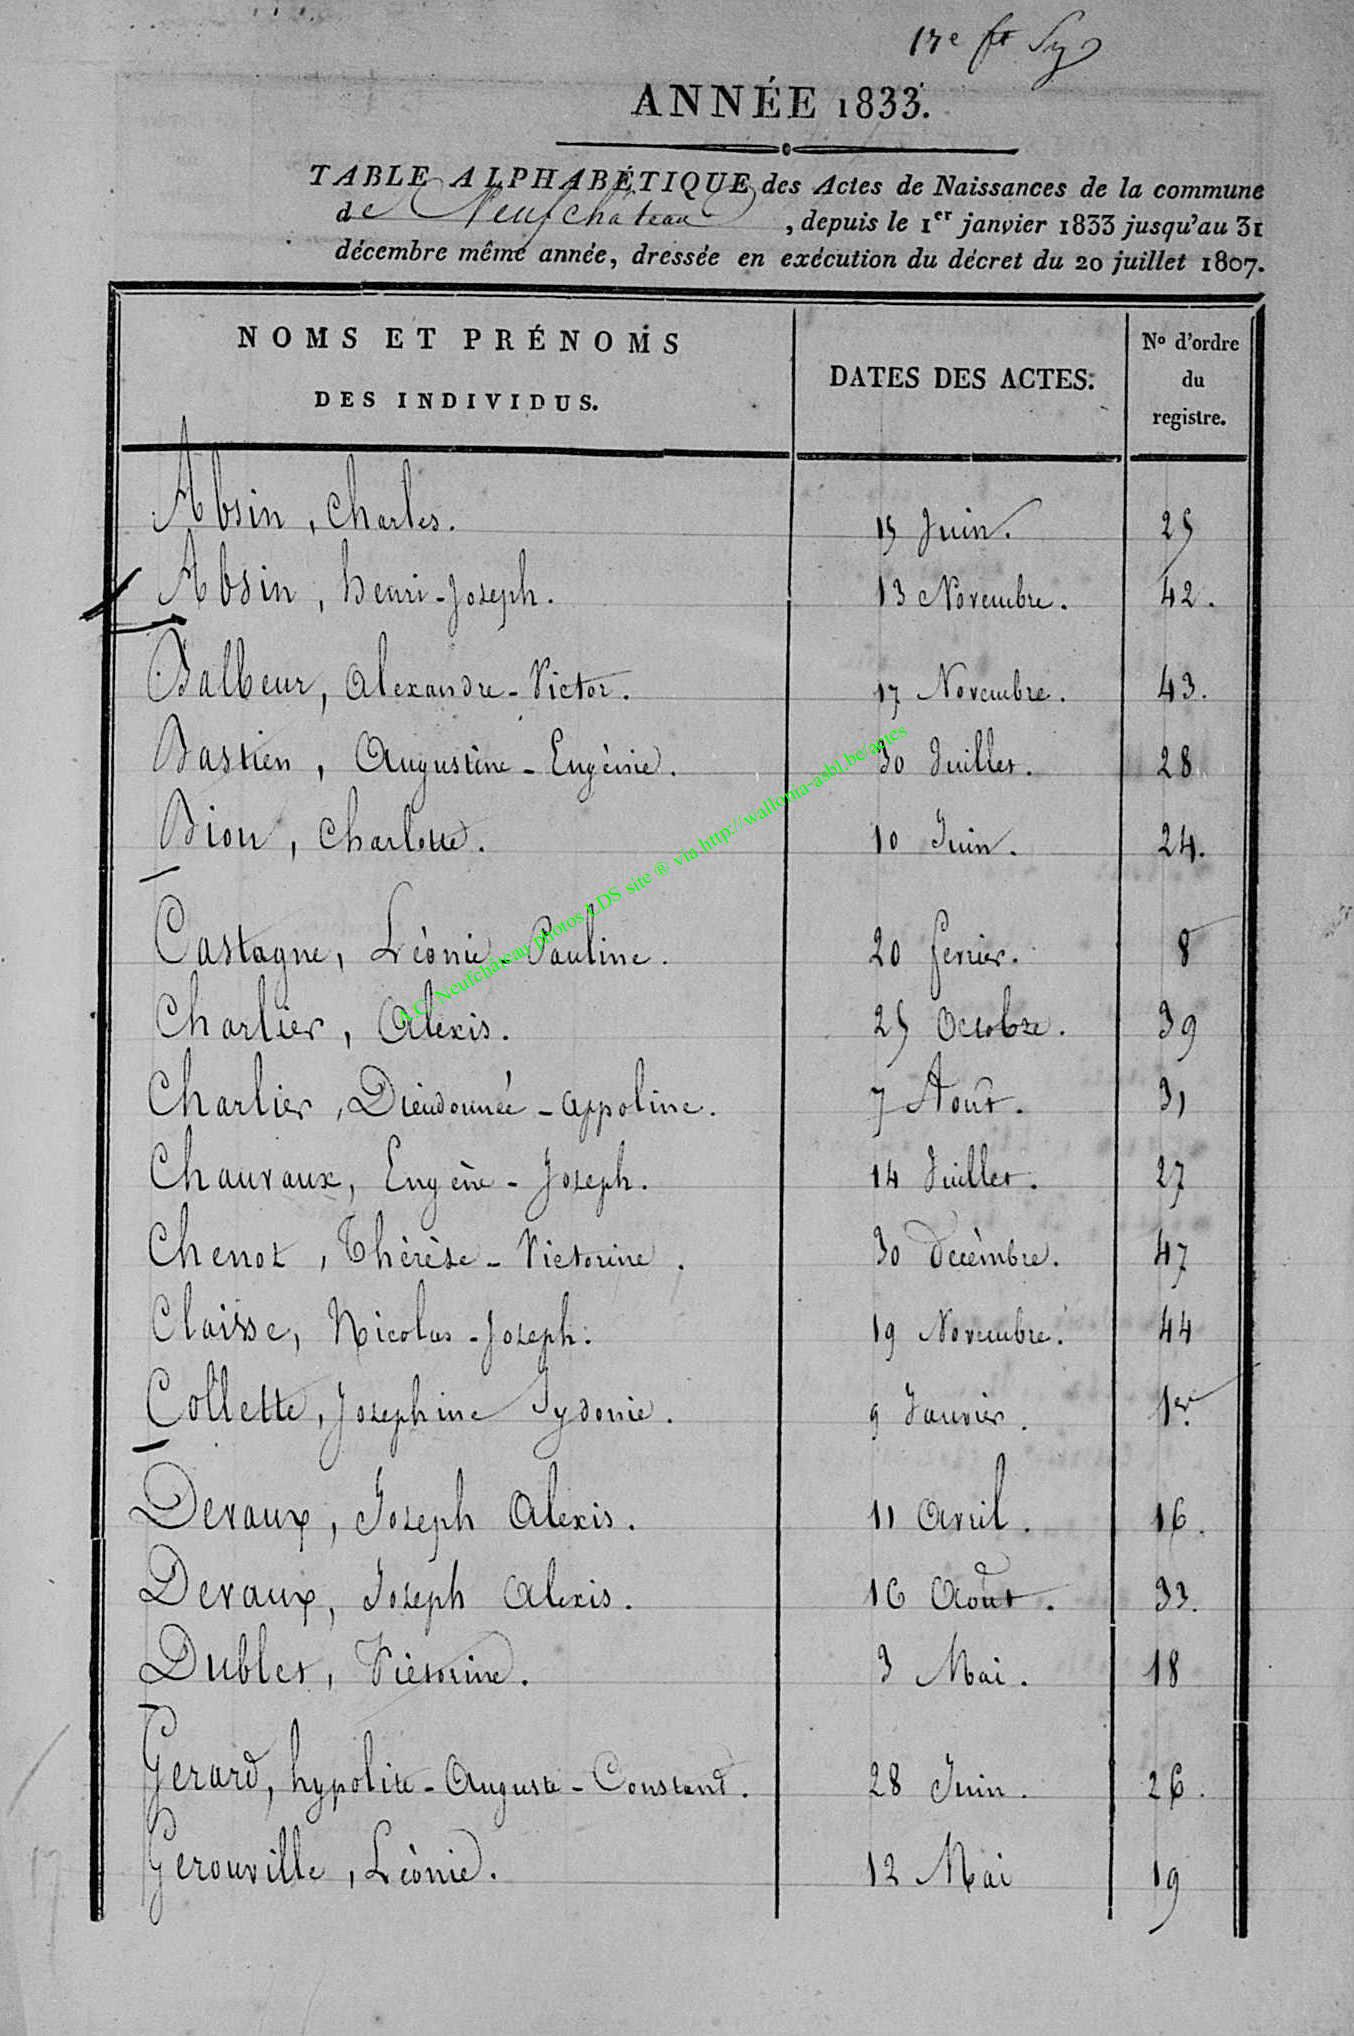 17e ft Sy
ANNÉE 1833.
TABLE ALPHABÉTIQUE des Actes de Naissances de la commune
de Neufchâteau, depuis le 1er janvier 1833 jusqu'au 31
décembre même année, dressée en exécution du décret du 20 juillet 1807.
NOMS ET PRÉNOMS DES INDIVIDUS. DATES DES ACTES. No d'ordre du registre.
Absin, Charles. 15 Juin. 25
Absin, henri-Joseph. 13 Novembre. 42.
Balbeur, Alexandre-Victor. 17 Novembre. 43.
Bastien, Augustine-Eugénie. 30 Juillet. 28
Bion, Charlotte. 10 Juin. 24.
Castagne, Léonie-Pauline. 20 fevrier. 8
Charlier, Alexis. 25 Octobre. 39
Charlier, Dieudonnée-Appoline. 7 Août. 31
Chauvaux, Eugène-Joseph. 14 Juillet. 27
Chenot, Thérèse-Victorine. 30 Decèmbre. 47
Claisse, Nicolas-Joseph. 19 Novembre. 44
Collette, Josephine Sydonie. 9 Janvier. 1er
Devaux, Joseph Alexis. 11 Avril. 16.
Devaux, Joseph Alexis. 16 Août. 33.
Dublet, Victorine. 3 Mai. 18
Gerard, hypolite-Auguste-Constand. 28 Juin. 26.
Gerouville, Léonie. 12 Mai 19
A.C. Neufchâteau photos LDS site ® via http://wallonia-asbl.be/actes